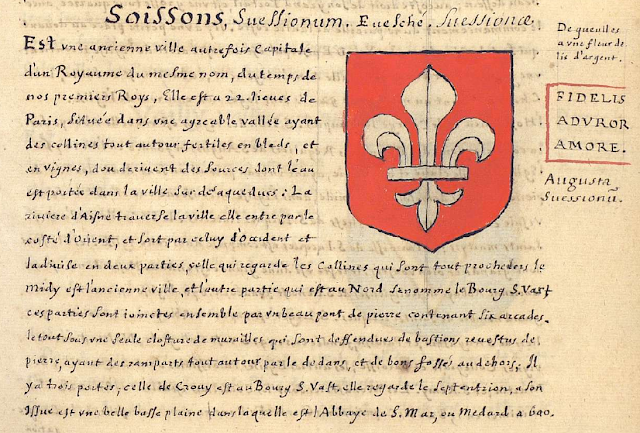 Soissons, Suessionum. Euesché. Suessionæ
Est vne ancienne ville autrefois Capitale
d'un Royaume du mesme nom, du temps de
nos premiers Roys, Elle est a 22. lieues de
Paris, située dans vne agreable vallée ayant
des collines tout autour fertiles en bleds, et
en vignes, dou deriuent des sources dont l'eau
est portée dans la ville sur des aqueducs: La
riuiere d'Aisne trauerse la ville elle entre par le
costé d'Orient, et sort par celuy d'Occident et
la diuise en deux parties, celle qui regarde les Collines qui sont tout proche vers le
midy est l'ancienne ville, et l'autre partie qui est au Nord se nomme le Bourg S. Vast
ces parties sont iointes ensemble par vn beau pont de pierre contenant six arcades,
le tout sous vne seule closture de murailles qui sont deffendues de bastions reuestus de
pierre, ayant des ramparts tout autour par le dedans, et de bons fossés au dehors, Il
y a trois portes, celle de Crouy est au Bourg S. Vast, elle regarde le Septentrion, a son
Issue est vne belle basse plaine dans laquelle est l'Abbaye de S. Mar, ou Medard a 600.
De gueulles
a vne fleur de
lis d'argent.
FIDELIS
ADVROR
AMORE.
Augusta
Suessionũ.